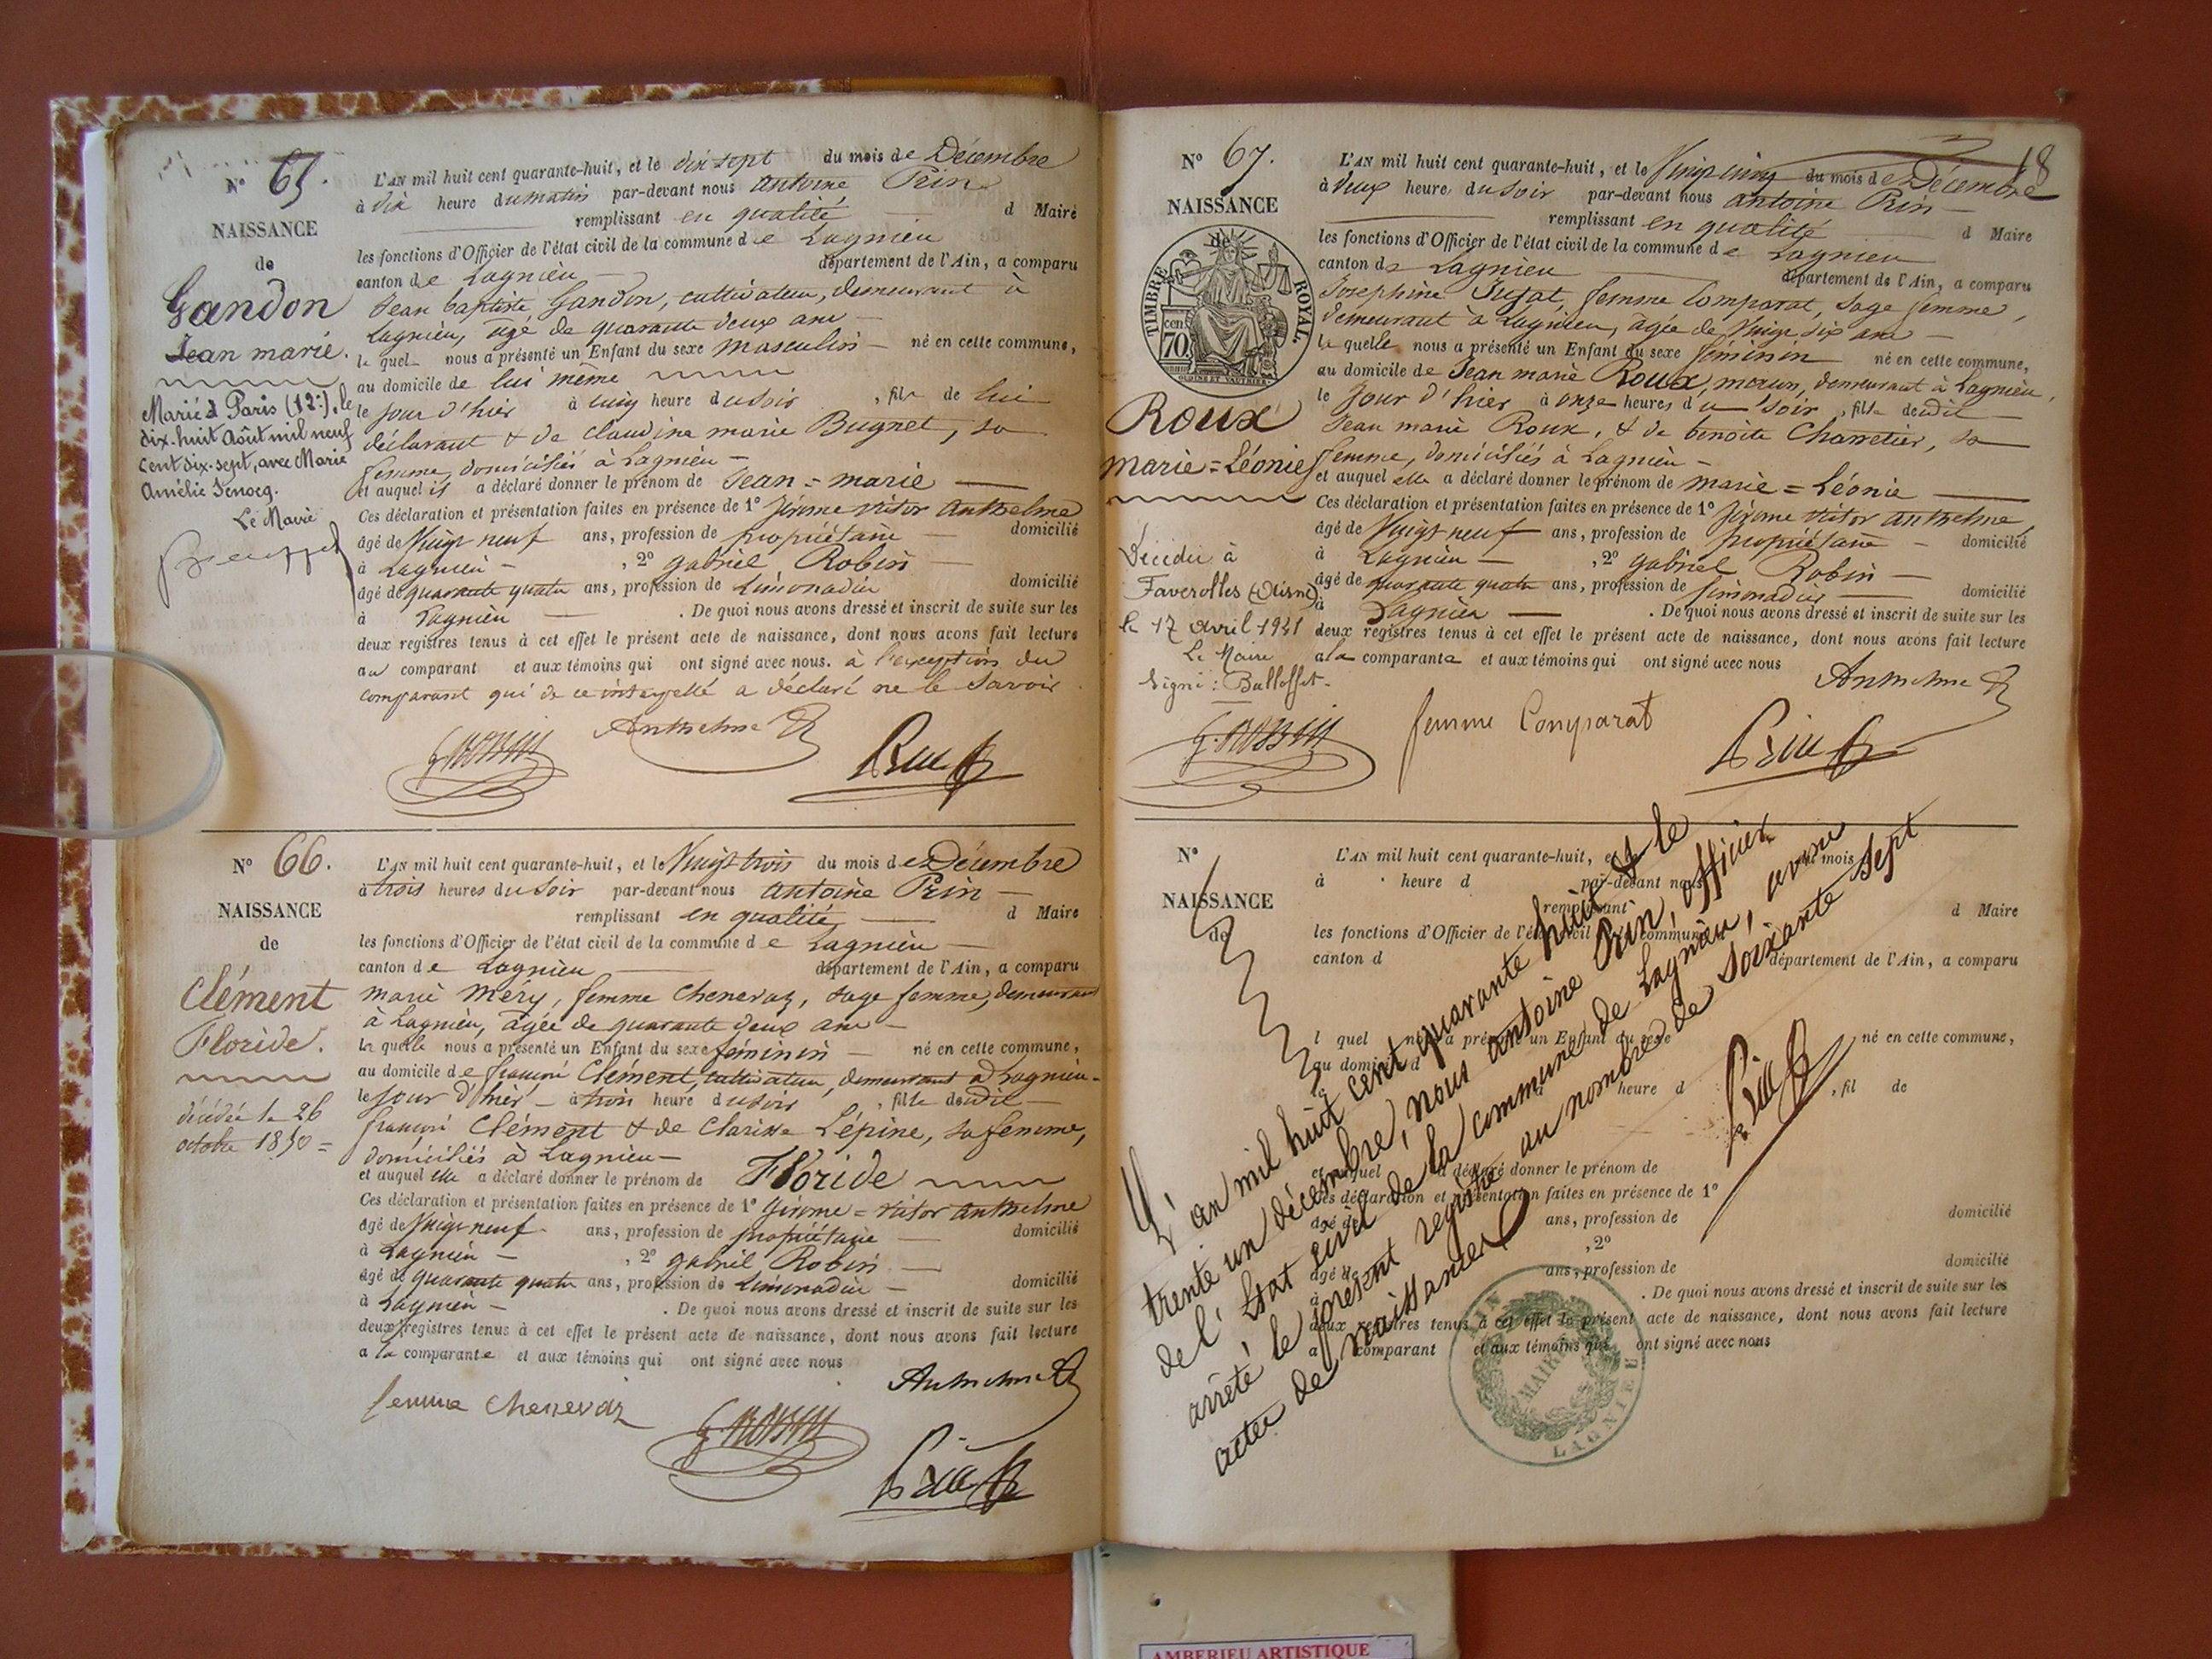 N° 65.
NAISSANCE
de
Gandon
Jean marie.
Marié à Paris (12e), le
dix-huit Août mil neuf
cent dix-sept, avec Marie
Amélie
Le Maire
L'AN mil huit cent quarante-huit, et le dix sept du mois de Décembre
à dix heure du matin par-devant nous antoine Prin
remplissant en qualité d Maire
les fonctions d'Officier de l'état civil de la commune de Lagnieu
canton de Lagnieu département de l'Ain, a comparu
Jean baptiste Gandon, cultivateur, demeurant à
Lagnieu, âgé de quarante deux ans
le quel nous a présenté un Enfant du sexe masculin né en cette commune,
au domicile de lui même
le jour d'hier à cinq heure du soir, fils de lui
déclarant & de claudine marie Bugnet, sa
femme, domiciliés à Lagnieu
et auquel il a déclaré donner le prénom de Jean = marie
Ces déclaration et présentation faites en présence de 1° Jérome Victor Anthelme
âgé de Vingt neuf ans, profession de propriétaire domicilié
à Lagnieu , 2° gabriel Robin
âgé de quarante quatre ans, profession de Limonadier domicilié
à Lagnieu . De quoi nous avons dressé et inscrit de suite sur les
deux registres tenus à cet effet le présent acte de naissance, dont nous avons fait lecture
au comparant et aux témoins qui ont signé avec nous. à l'exception du
comparant qui de ce interpellé a déclaré ne le savoir
G. ROBIN Anthelme Prin
N° 66.
NAISSANCE
de
Clément
Floride.
décédée le 26
octobre 1850 =
L'AN mil huit cent quarante-huit, et le Vingt trois du mois de Décembre
à trois heures du soir par-devant nous antoine Prin
remplissant en qualité d Maire
les fonctions d'Officier de l'état civil de la commune de Lagnieu
canton de Lagnieu département de l'Ain, a comparu
marie méry, femme chenevaz, sage femme, demeurant
à Lagnieu, âgée de quarante deux ans
la quelle nous a présenté un Enfant du sexe féminin né en cette commune,
au domicile de françois Clément, cultivateur, demeurant à Lagnieu
le jour d'hier à trois heure du soir , fille dudit
françois Clément & de Clarisse Lépine, sa femme,
domiciliés à Lagnieu
et auquel elle a déclaré donner le prénom de Floride
Ces déclaration et présentation faites en présence de 1° Jérome = Victor Anthelme
âgé de Vingt neuf ans, profession de propriétaire domicilié
à Lagnieu , 2° gabriel Robin
âgé de quarante quatre ans, profession de Limonadier domicilié
à Lagnieu . De quoi nous avons dressé et inscrit de suite sur les
deux registres tenus à cet effet le présent acte de naissance, dont nous avons fait lecture
a la comparante et aux témoins qui ont signé avec nous
Anthelme
femme chenevaz G. ROBIN
Prin
18
N° 67.
NAISSANCE
de
TIMBRE ROYAL
cen. 70
Roux
Marie = Léonie
Décédée à
Faverolles (Aisne)
le 17 avril 1921
Le Maire
Signé : Balloffet
L'AN mil huit cent quarante-huit, et le Vingt cinq du mois de Décembre
à deux heure du soir par-devant nous antoine Prin
remplissant en qualité d Maire
les fonctions d'Officier de l'état civil de la commune de Lagnieu
canton de Lagnieu département de l'Ain, a comparu
Josephine femme Comparat, sage femme,
demeurant à Lagnieu, âgée de Vingt six ans
la quelle nous a présenté un Enfant du sexe féminin né en cette commune,
au domicile de Jean marie Roux, maçon, demeurant à Lagnieu,
le jour d'hier à onze heures du soir, fille dudit
Jean marie Roux, & de benoite Charretier, sa
femme, domiciliés à Lagnieu
et auquel elle a déclaré donner le prénom de marie = Léonie
Ces déclaration et présentation faites en présence de 1° Jérome Victor anthelme,
âgé de Vingt neuf ans, profession de propriétaire domicilié
à Lagnieu , 2° gabriel Robin
âgé de quarante quatre ans, profession de limonadier domicilié
à Lagnieu . De quoi nous avons dressé et inscrit de suite sur les
deux registres tenus à cet effet le présent acte de naissance, dont nous avons fait lecture
a la comparante et aux témoins qui ont signé avec nous
Anthelme
G. ROBIN femme Comparat Prin
N°
NAISSANCE
de
L'AN mil huit cent quarante-huit, et le du mois
à heure d par-devant nous
remplissant d Maire
les fonctions d'Officier de l'état civil de la commune
canton d département de l'Ain, a comparu
l quel nous a présenté un Enfant du sexe né en cette commune,
au domicile d
le heure d , fil de
et auquel a déclaré donner le prénom de
Ces déclaration et présentation faites en présence de 1°
âgé de ans, profession de domicilié
à , 2°
âgé de ans, profession de domicilié
à . De quoi nous avons dressé et inscrit de suite sur les
deux registres tenus à cet effet le présent acte de naissance, dont nous avons fait lecture
a comparant et aux témoins qui ont signé avec nous
L'an mil huit cent quarante huit & le
trente un décembre, nous antoine Prin, officier
de l'Etat civil de la commune de Lagnieu, avons
arrêté le présent registre au nombre de soixante sept
actes de naissances
Prin
AIN
MAIRIE
LAGNIEU
AMBERIEU ARTISTIQUE